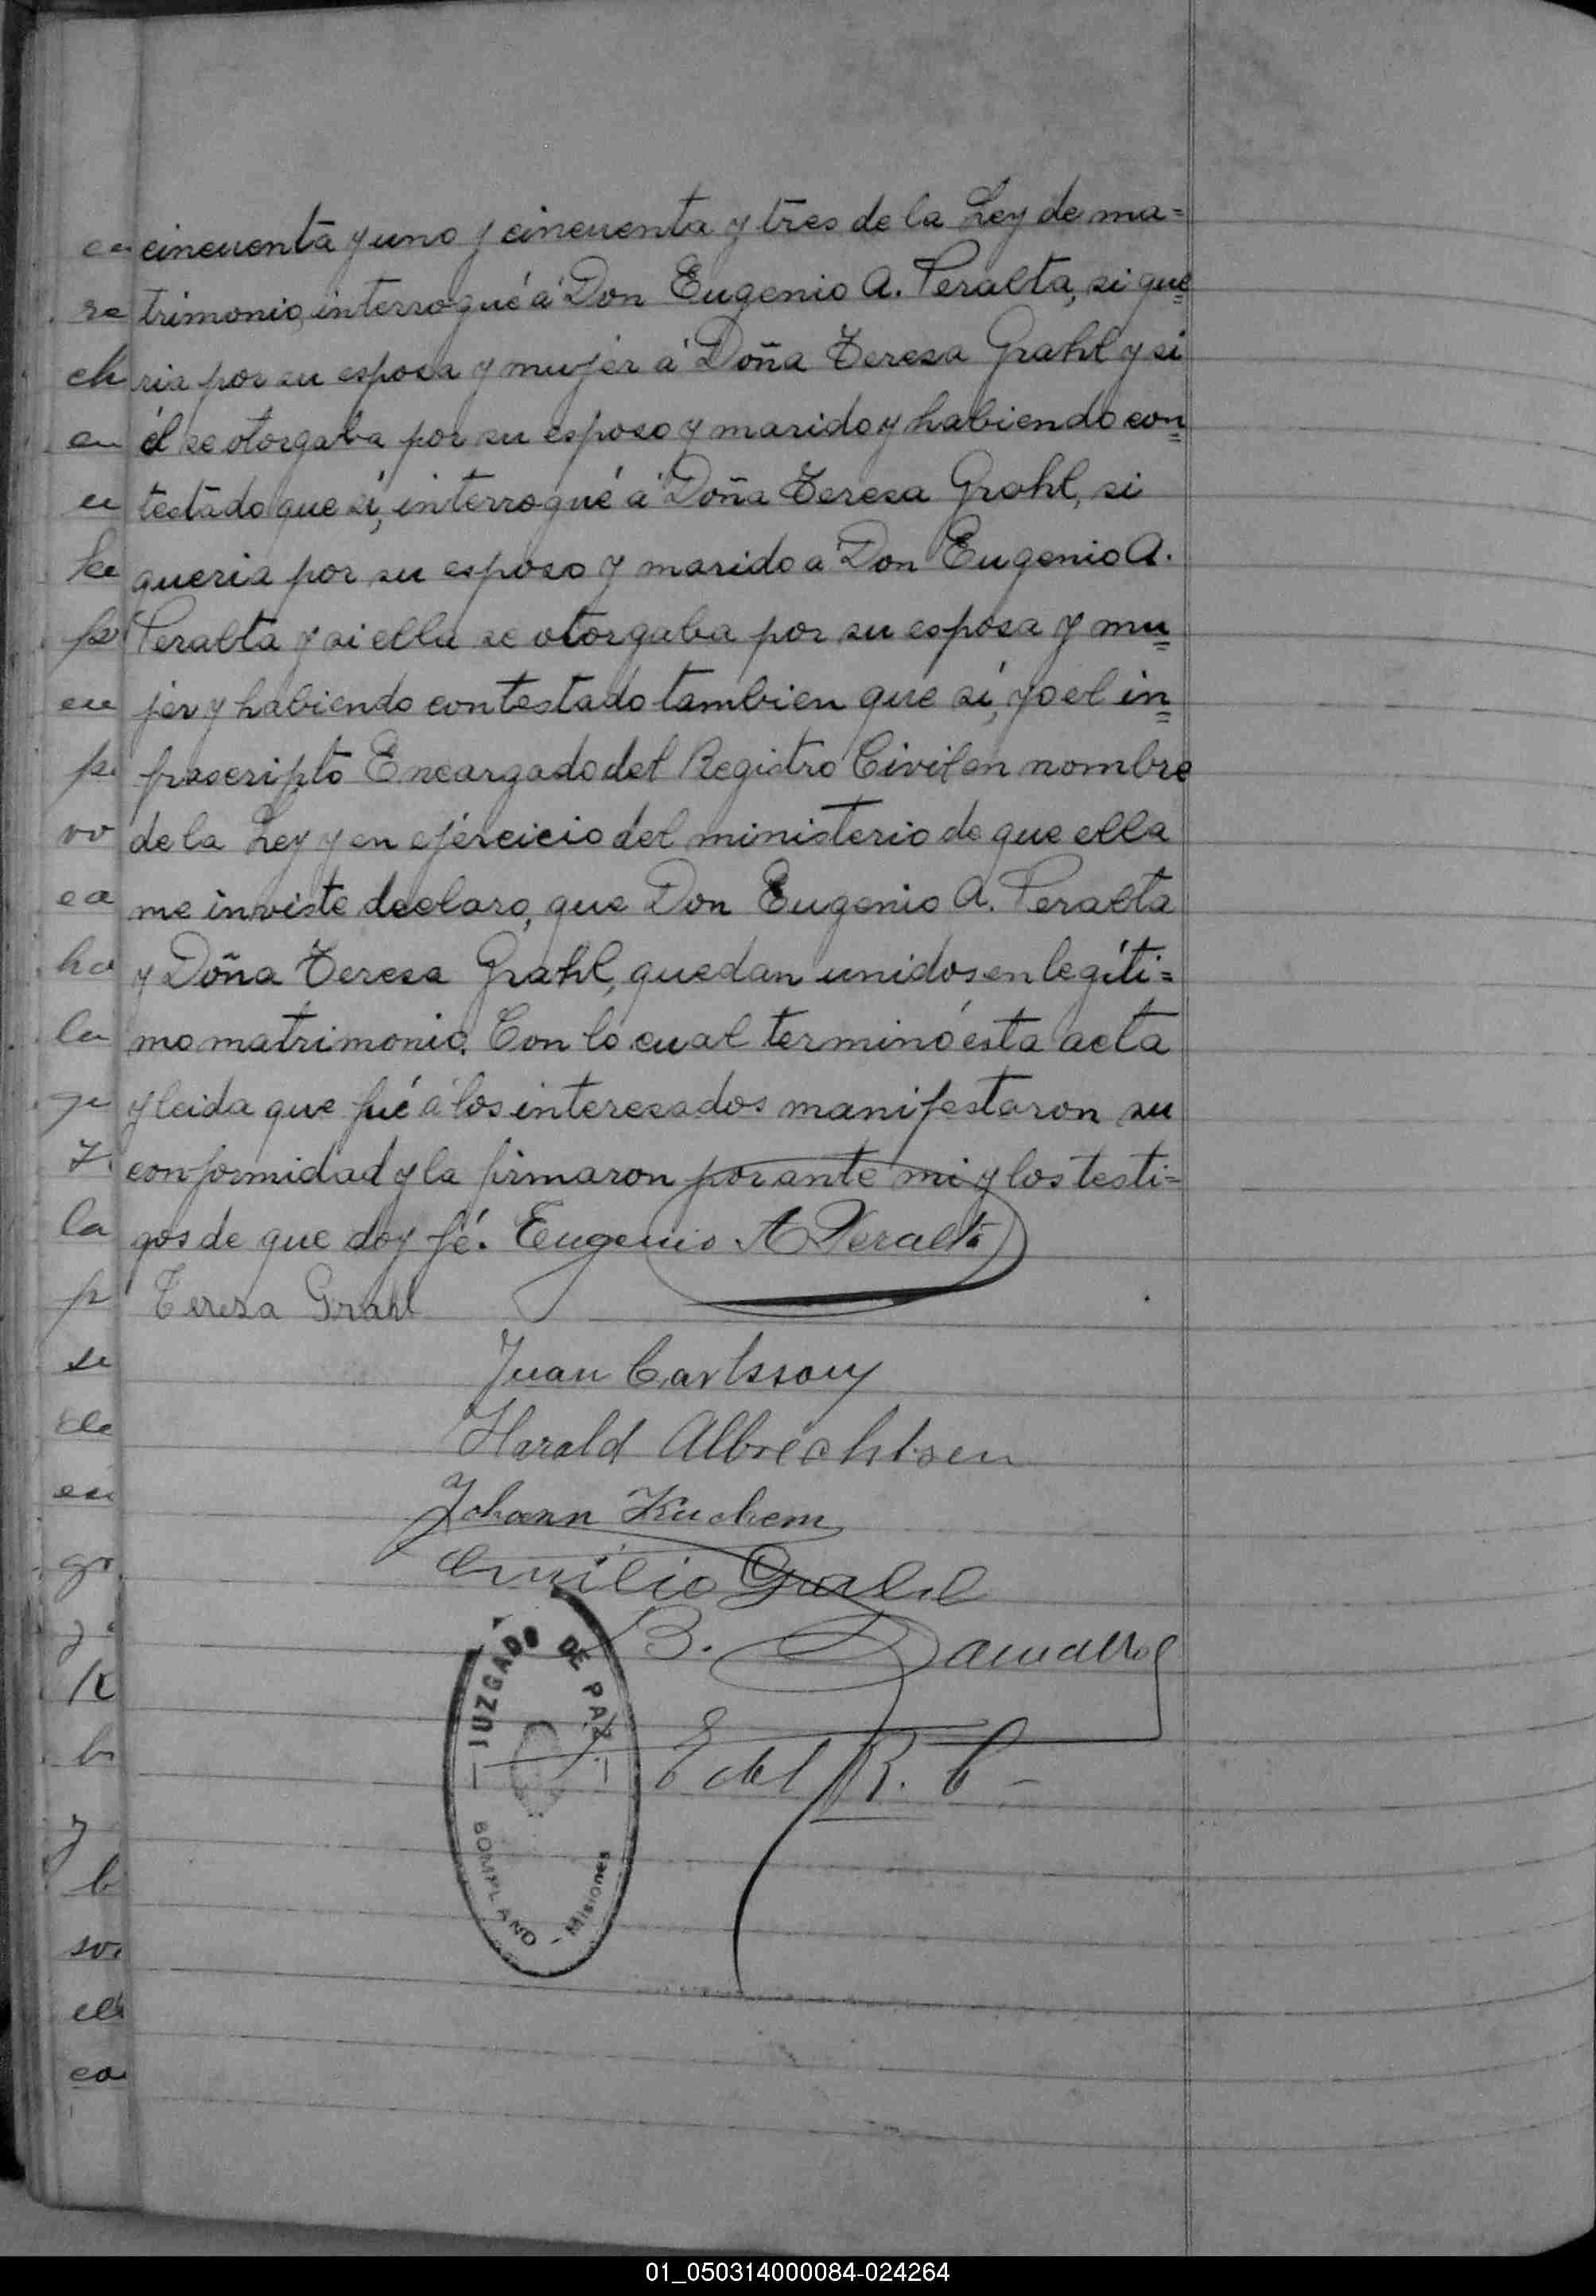 cincuenta y uno y cincuenta y tres de la Ley de ma=
trimonio, interrogué á Don Eugenio A. Peralta, si que=
ria por su esposa y mujer á Doña Teresa Grahl y si
él se otorgaba por su esposo y marido y habiendo con=
testado que sí, interrogué á Doña Teresa Grahl, si
queria por su esposo y marido a Don Eugenio A.
Peralta y si ella se otorgaba por su esposa y mu=
jer y habiendo contestado tambien que sí, yo el in=
frascripto Encargado del Registro Civil en nombre
de la Ley y en ejercicio del ministerio de que ella
me inviste declaro, que Don Eugenio A. Peralta
y Doña Teresa Grahl, quedan unidos en legíti=
mo matrimonio. Con lo cual terminó ésta acta
y leida que fué á los interesados manifestaron su
conformidad y la firmaron por ante mi y los testi=
gos de que doy fé. Eugenio A Peralta
Teresa Grahl
Juan Carlsson
Harald Albrechtsen
Johann Kuchem
Emilio Grahl
B.
E del R. C -
JUZGADO DE PAZ
BOMPLAND - Misiones
01_050314000084-024264